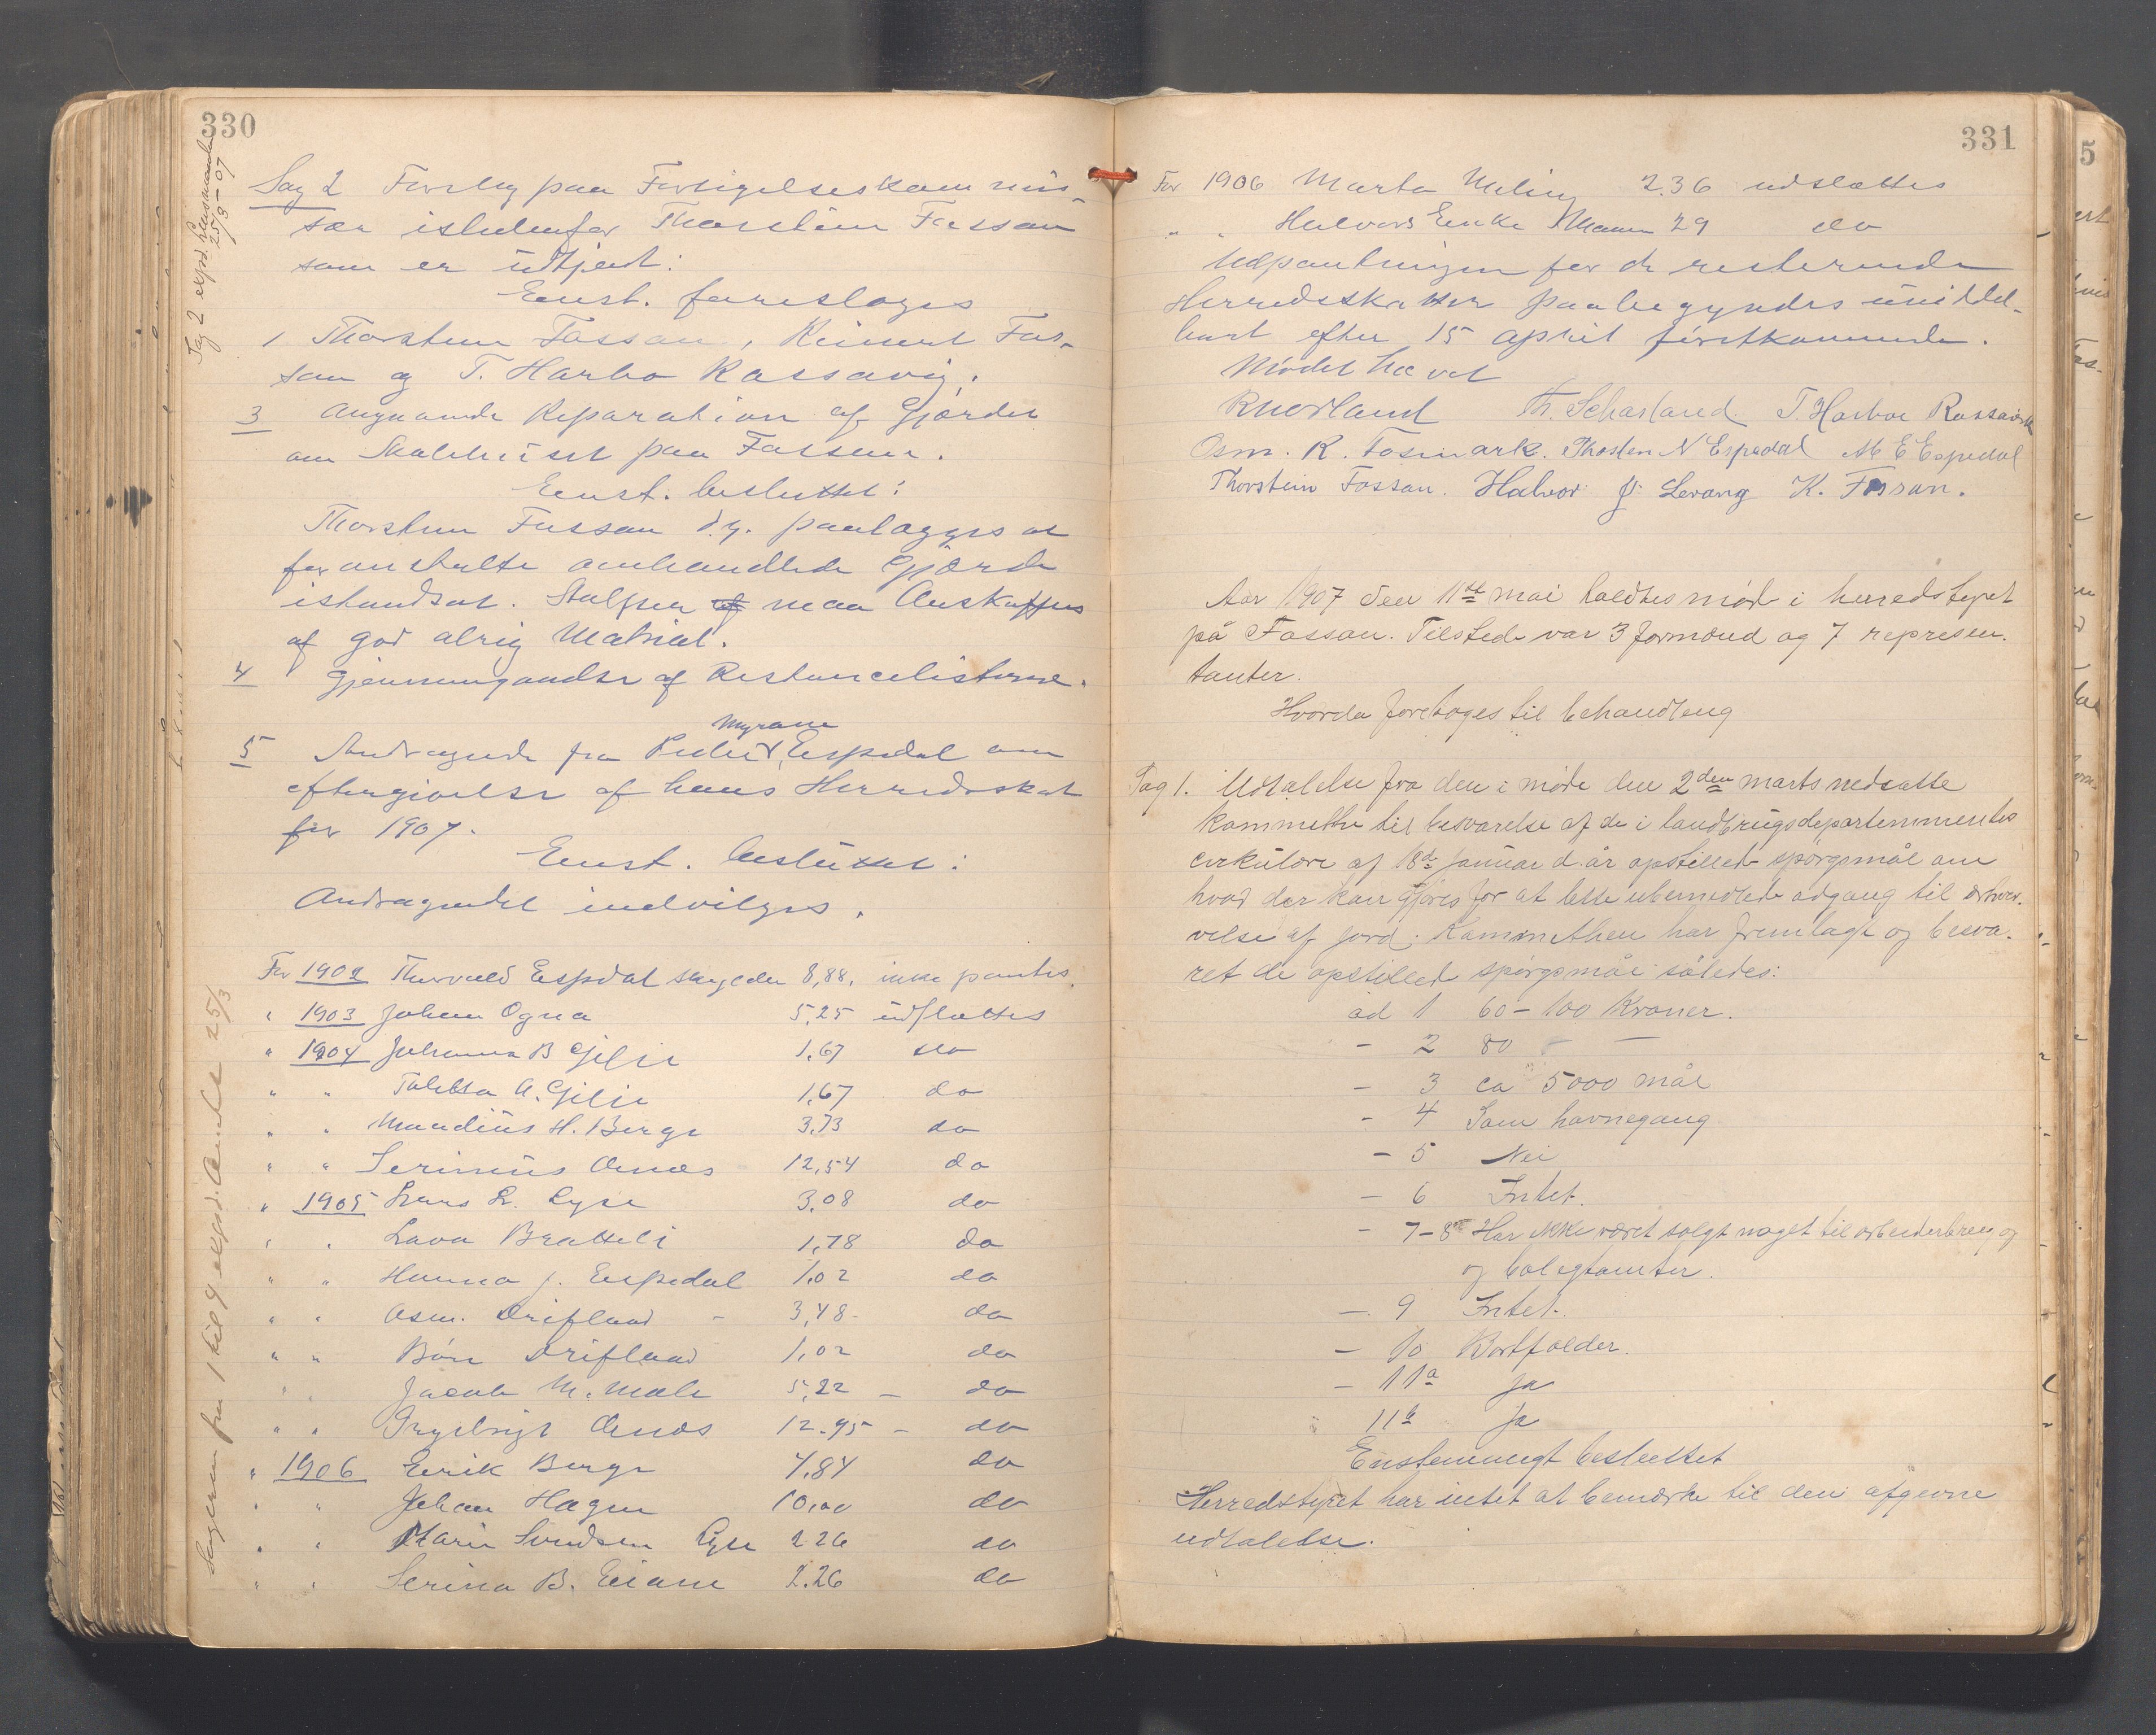 330
Sag 2 expd. Lensmanden
25/3 - 07
Sag 2 Forslag paa Forligelseskommis-
sær istedenfor Thorstein Fossan
som er udtjent:
Enst. foreslages
1 Thorstein Fossan, Reinert Fos-
san og T. Harbo Rossavig.
3 Angaaende Reparation af Gjærdet
om Skolehuset paa Fossan.
Enst. besluttet:
Thorstein Fossan d.y. paalægges at
foranstalte omhandlede Gjærde
istandsat. Stolper af maa Anskaffes
af god alrig Matrial.
4 Gjennemgaaelse af Restancelisterne.
Myrane
5 Andragende fra Peder Espedal om
eftergivelse af hans Herredsskat
for 1907.
Enst. besluttet:
Andragendet indvilges.
For 1902 Thorvald Espedal 8,88. ikke pantes.
" 1903 Johan Ogna 5,25 udslættes
" 1904 Johanna B Gjilje 1,67 do
" " Taletta A. Gjilje 1,67 do
" " Mandius H. Berge 3,73 do
" " Serinius Ænæs 12,54 do
" 1905 Hans L. Lyse 3,08 do
" " Lava Bratteli 1,78 do
" " Hanna J. Espedal 1,02 do
" " Asm. Drifland - 3,48 - do
" " Bår Drifland 1,02 do
" " Jacob M. Mæle 5,22 - do
" " Ingebrigt Ænæs 12.95 - do
" 1906 Eirik Berge 4,84 do
" " Johan Hagen 10,00 do
" " Marie Svendsen Lyse 2 26 do
" " Serina B. Eiane 2.26 do
Sagerne fra 1 til 4 expd. Amtet 25/3
331
For 1906 Marta Meling 2.36 udslættes
" " Halvard Enke 29 do
Udpantningen for de resterende
Herredsskatter paabegyndes umiddel-
bart efter 15 april førstkommende.
Mødet hævet
R Nerland Th. Scharland. T. Harboe Rossavik
Osm. R. Fosmark. Thosten N Espedal M E Espedal
Thorstein Fossan. Halvor J. Levang K. Fossan.
Aar 1907 den 11te mai holdtes møde i herredstyret
på Fossan. Tilstede var 3 formænd og 7 represen-
tanter.
Hvorda foretoges til behandleng
Sag 1. Udtalelse fra den i møde den 2den marts nedsatte
kommitthe til besvarelse af de i landbrugsdepartemmentes
cirkulære af 18de Januar d. år opstillede spørgsmål om
hvad der kan gjøres for at lette ubemedlede adgang til erhver-
velse af jord. Kommitheen har fremlagt og besva-
ret de opstillede spørgsmål således:
ad 1 60 - 100 Kroner.
- 2 80 - -
- 3 ca 5000 mål
- 4 Som havnegang
- 5 Nei
- 6 Intet.
- 7-8 Har ikke været solgt noget til arbeiderbrug og
og boligtomter.
- 9 Intet.
- 10 Bortfalder.
- 11a Ja
11b Ja
Enstemmigt besluttet
Herredstyret har intet at bemærke til den afgevne
udtalelse.